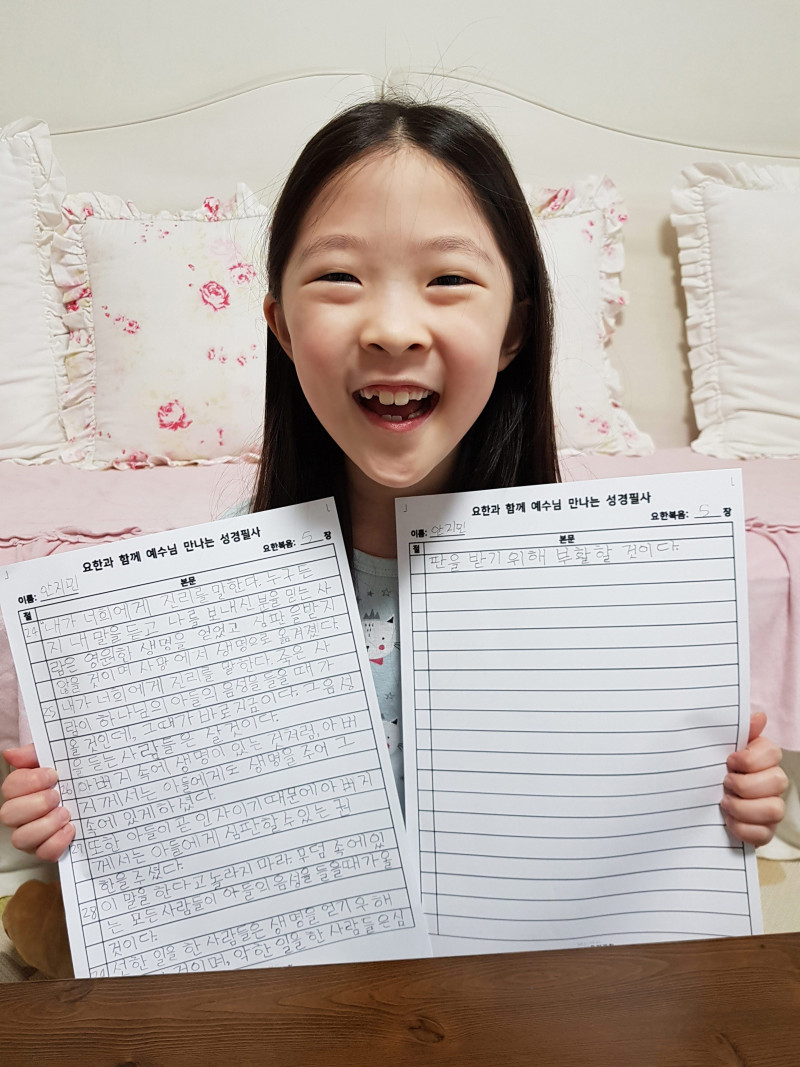 요한과 함께 예수님 만나는 성경필사
이름: 안지민 요한복음: 5 장
절 본문
24 내가 너희에게 진리를 말한다. 누구든
지 내 말을 듣고 나를 보내신 분을 믿는 사
람은 영원한 생명을 얻었고 심판을받지
않을 것이며 사망에서 생명으로 옮겨졌다.
25 내가 너희에게 진리를 말한다. 죽은 사
람이 하나님의 아들의 음성을 들을 때가
올것인데, 그때가 바로지금이다. 그음성
을 듣는 사람들은 살 것이다.
26 아버지 속에 생명이 있는 것처럼, 아버
지 께서는 아들에게도 생명을 주어 그
속에 있게하셨다.
27 또한 아들이 곧 인자이기때문에 아버지
께서는 아들에게 심판할수있는 권
한을 주셨다.
28 이 말을 한다고 놀라지 마라. 무덤 속에있
는 모든 사람들이 아들의 음성을 들을때가올
것이다.
29 선한 일을 한 사람들은 생명을 얻기위해
것이며, 악한 일을 한 사람들은심
요한과 함께 예수님 만나는 성경필사
이름: 안지민 요한복음: 5 장
절 본문
판을 받기 위해 부활할 것이다.